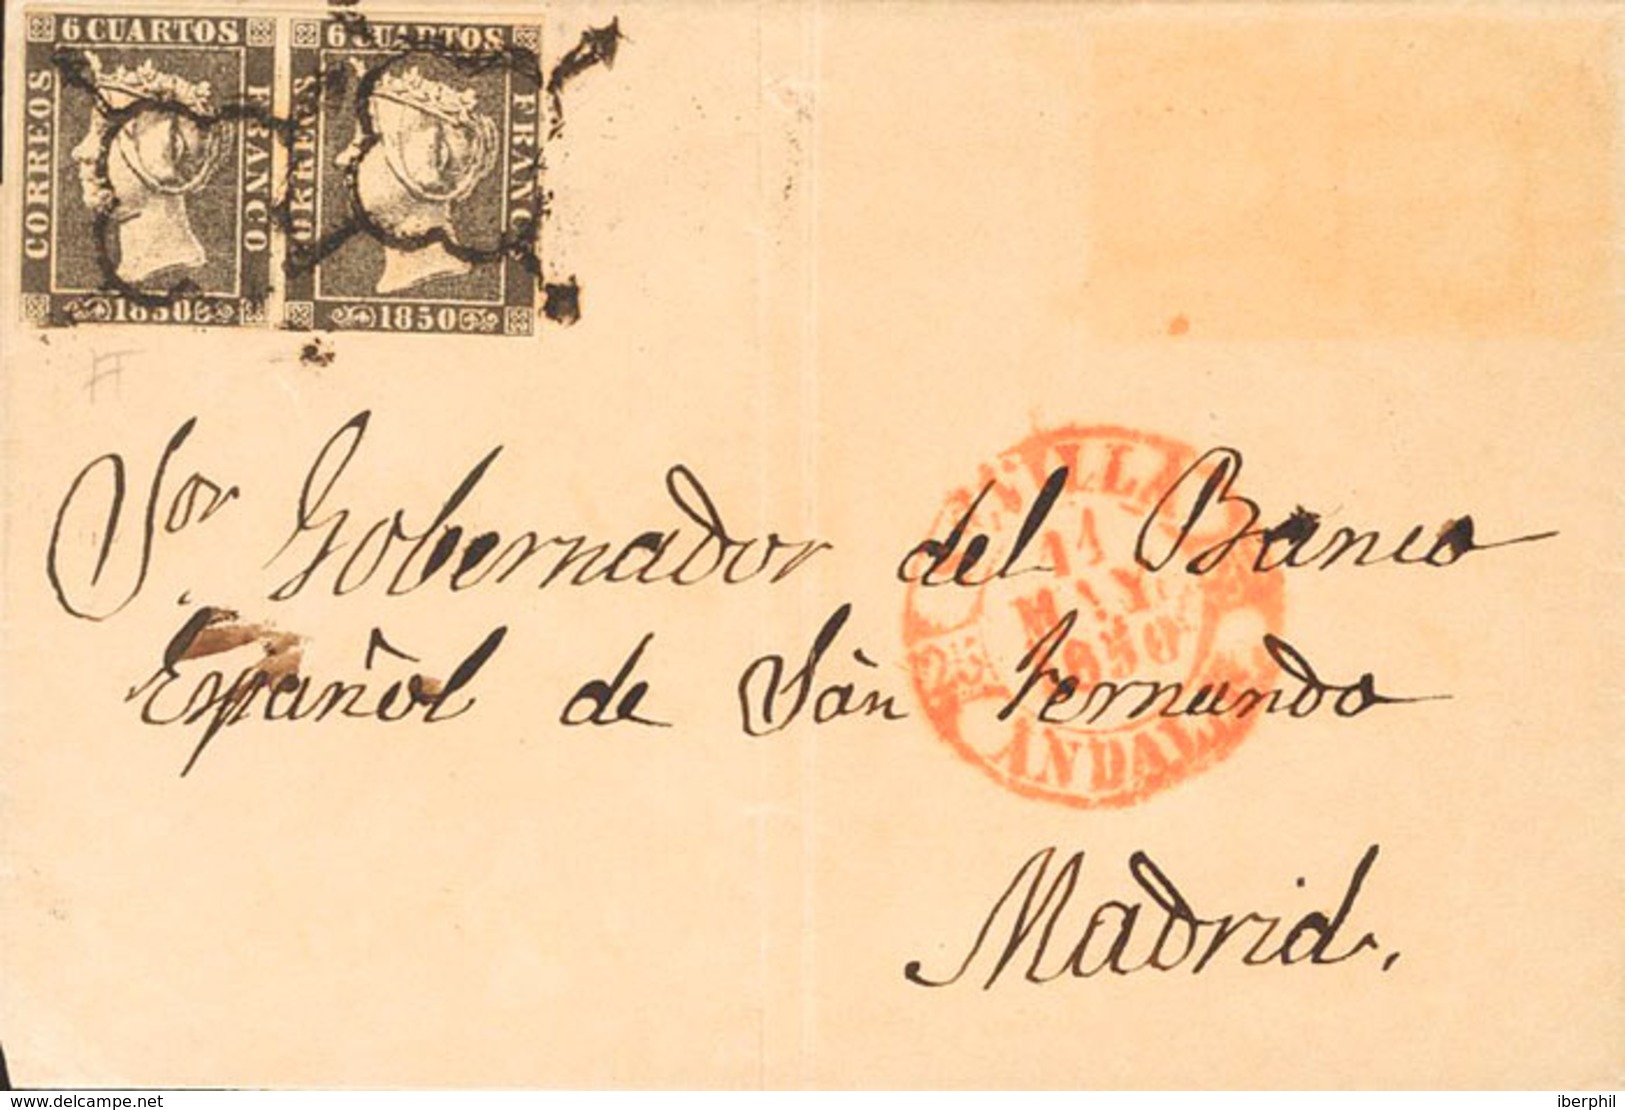 6 CUARTOS
CORREOS
FRANCO
1850
6 CUARTOS
CORREOS
FRANCO
1850
Sor Gobernador del Banco
Español de San Fernando
Madrid.
SEVILLA
11
MAY.
1850
25
ANDAL
www.delcampe.net
iberphil